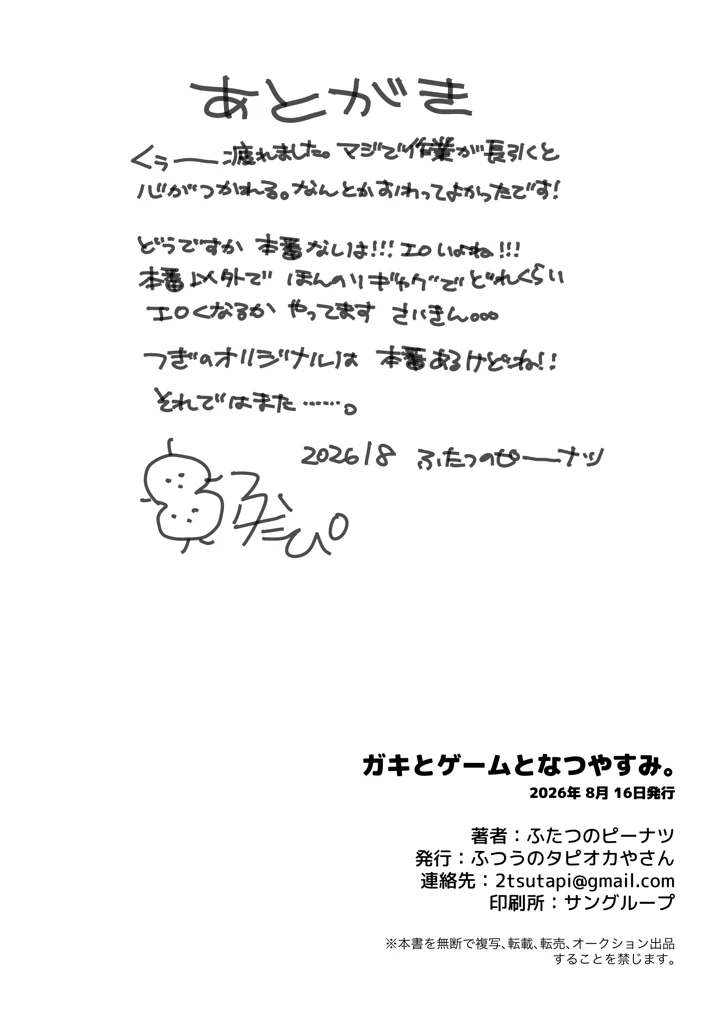 あとがき
くぅー疲れました。マジで作業が長引くと
心がつかれる。なんとかおわってよかったです!
どうですか 本番なしは!!!エロいよね!!!
本番以外で ほんのりギャグでどれくらい
エロくなるか やってます さいきん...
つぎのオリジナルは 本番あるけどね!!
それではまた……。
2026/8 ふたつのピーナツ
ふたぴ
ガキとゲームとなつやすみ。
2026年 8月 16日発行
著者：ふたつのピーナツ
発行：ふつうのタピオカやさん
連絡先：2tsutapi@gmail.com
印刷所：サングループ
※本書を無断で複写、転載、転売、オークション出品
することを禁じます。